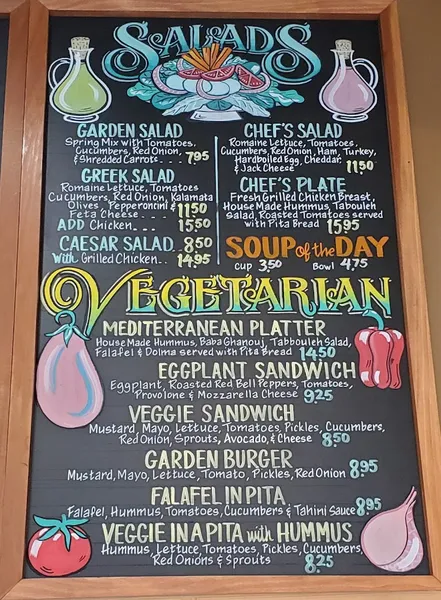 SALADS
GARDEN SALAD
Spring Mix with Tomatoes,
Cucumbers, Red Onion,
& Shredded Carrots... 7.95
GREEK SALAD
Romaine Lettuce, Tomatoes
Cucumbers, Red Onion, Kalamata
Olives, Pepperoncini &
Feta Cheese..... 11.50
ADD Chicken.... 15.50
CAESAR SALAD.. 8.50
With Grilled Chicken.. 14.95
CHEF'S SALAD
Romaine Lettuce, Tomatoes,
Cucumbers, Red Onion, Ham, Turkey,
Hardboiled Egg, Cheddar,
& Jack Cheese 11.50
CHEF'S PLATE
Fresh Grilled Chicken Breast,
House Made Hummus, Tabouleh
Salad, Roasted Tomatoes served
with Pita Bread 15.95
SOUP of the DAY
CUP 3.50 Bowl 4.75
VEGETARIAN
MEDITERRANEAN PLATTER
House Made Hummus, Baba Ghanouj, Tabbouleh Salad,
Falafel & Dolma served with Pita Bread 14.50
EGGPLANT SANDWICH
Eggplant, Roasted Red Bell Peppers, Tomatoes,
Provolone & Mozzarella Cheese 9.25
VEGGIE SANDWICH
Mustard, Mayo, Lettuce, Tomatoes, Pickles, Cucumbers,
Red Onion, Sprouts, Avocado, & Cheese 8.50
GARDEN BURGER
Mustard, Mayo, Lettuce, Tomato, Pickles, Red Onion 8.95
FALAFEL IN PITA
Falafel, Hummus, Tomatoes, Cucumbers & Tahini Sauce 8.95
VEGGIE IN A PITA with HUMMUS
Hummus, Lettuce Tomatoes, Pickles, Cucumbers,
Red Onions & Sprouts 8.25